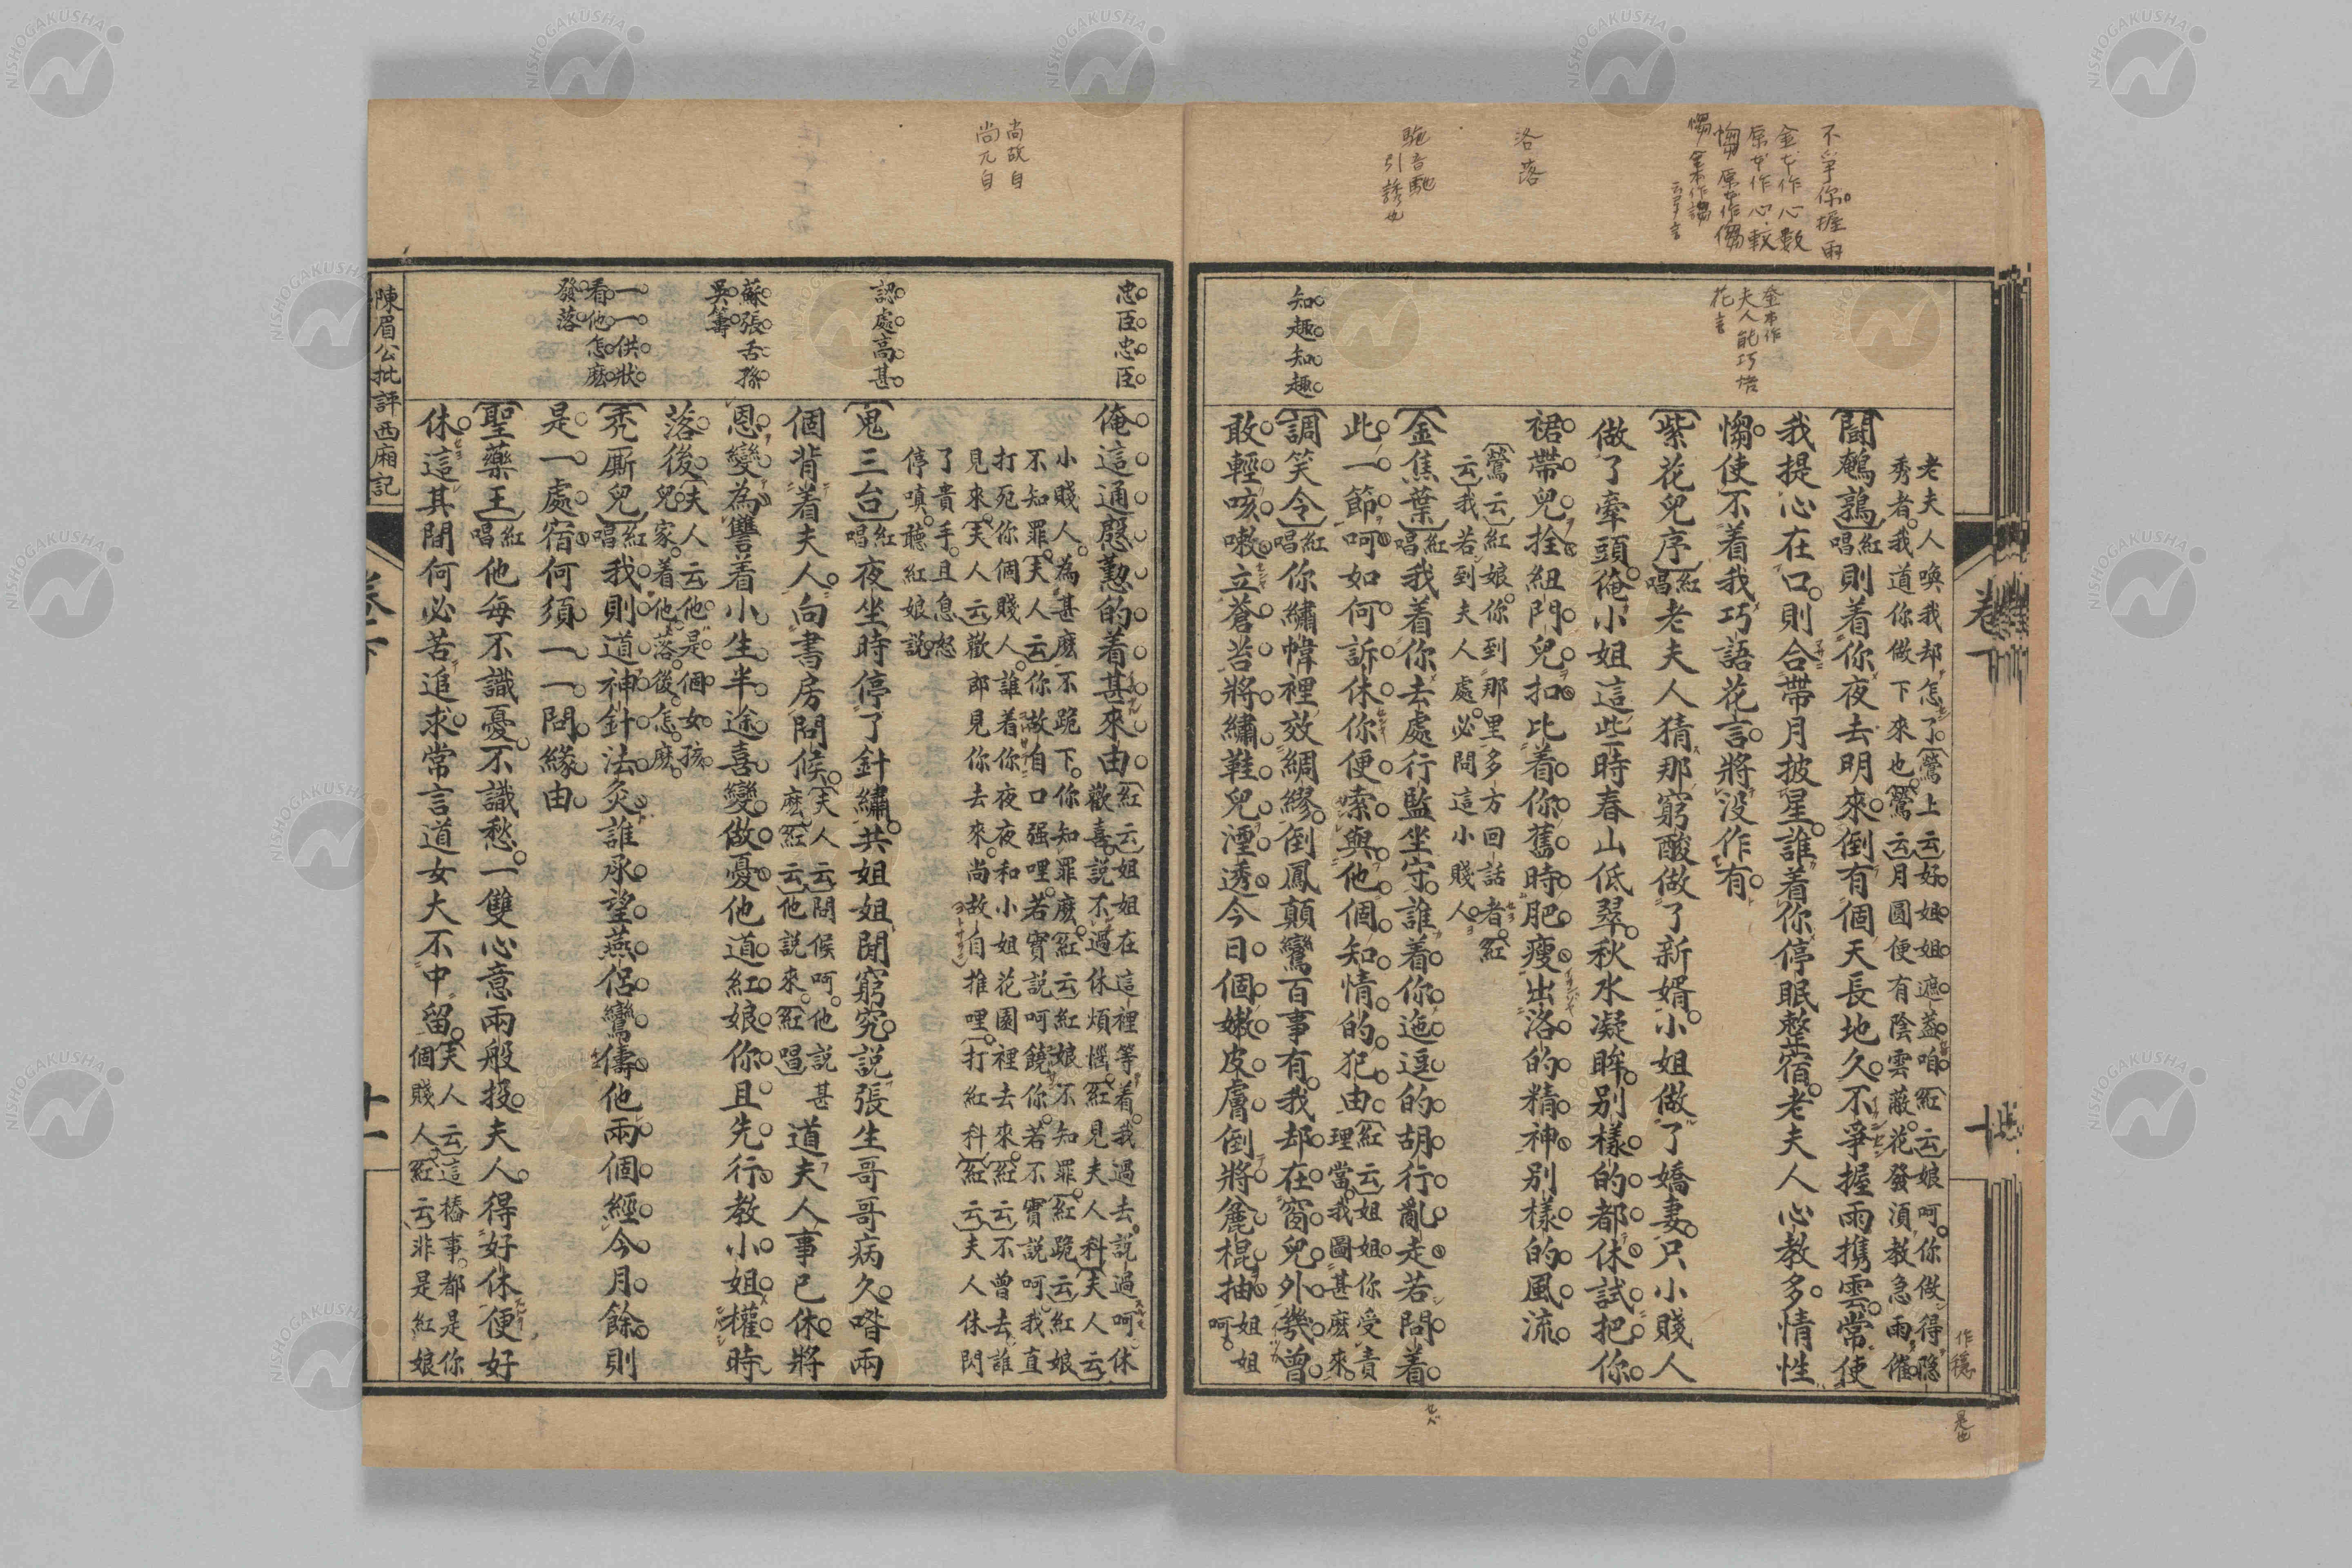 不爭你握雨
金本作心數
原本作心較
知趣知趣
老夫人喚我却怎了〔鶯上云〕好姐姐遮盖咱〔紅云〕娘呵你做得隐
秀者我道你做下來也〔鶯云〕月圓便有陰雲蔽花發湏教急雨催
〔鬪鵪鶉〕紅唱則着你夜去明來倒有個天長地久不爭握雨携雲常使
我提心在口則合帶月披星誰着你停眠整宿老夫人心教多情性
㑳使不着我巧語花言將没作有
〔紫花兒序〕紅唱老夫人猜那窮酸做了新婿小姐做了嬌妻只小賤人
做了牽頭俺小姐這些時春山低翠秋水凝眸别樣的都休試把你
裙帶兒拴紐門兒扣比着你舊時肥瘦出洛的精神别樣的風流
〔鶯云〕紅娘你到那里多方回話者〔紅
云〕我若到夫人處必問這小賤人
〔金焦葉〕紅唱我着你去處行監坐守誰着你迤逗的胡行亂走若問着
此一節呵如何訴休你便索與他個知情的犯由〔紅云〕姐姐你受責
理當我圖甚麽來
〔調笑令〕紅唱你繡幃裡效綢繆倒鳳顛鸞百事有我却在窗兒外幾曾
敢輕咳嗽立蒼苔將繡鞋兒湮透今日個嫩皮膚倒將麄棍抽姐姐
呵
洛落
引誘也
卷下
忠臣忠臣
俺這通慇懃的着甚來由〔紅云〕姐姐在這裡等着我過去說過呵休
歡喜說不過休煩惱〔紅見夫人科〕〔夫人云〕
小賤人為甚麽不跪下你知罪麽〔紅云〕紅娘不知罪〔紅跪云〕紅娘
不知罪〔夫人云〕你故自口强哩若實說呵饒你若不實說呵我直
打死你個賤人誰着你夜夜和小姐花園裡去來〔紅云〕不曾去誰
見來〔夫人云〕歡郎見你去來尚故自推哩〔打紅科〕〔紅云〕夫人休閃
了貴手且息怒
停嗔聽紅娘説
尚故自
尚兀自
認處高甚
〔鬼三台〕紅唱夜坐時停了針繡共姐姐閒窮究說張生哥哥病久喒兩
個背着夫人向書房問候〔夫人云〕問候呵他説甚
麽〔紅云〕他説來〔紅唱〕道夫人事已休將
恩變為讐着小生半途喜變做憂他道紅娘你且先行教小姐權時
落後〔夫人云〕他是個女孩
兒家着他落後怎麽
蘇張舌孫
吳籌
〔禿厮兒〕紅唱我則道神針法灸誰承望燕侶鸞儔他兩個經今月餘則
是一處宿何須一一問緣由
一一供狀
看他怎麽
發落
〔聖藥王〕紅唱他每不識憂不識愁一雙心意兩般投夫人得好休便好
休這其間何必苦追求常言道女大不中留〔夫人云〕這樁事都是你
個賤人〔紅云〕非是紅娘
陳眉公批評西廂記
卷下
十一